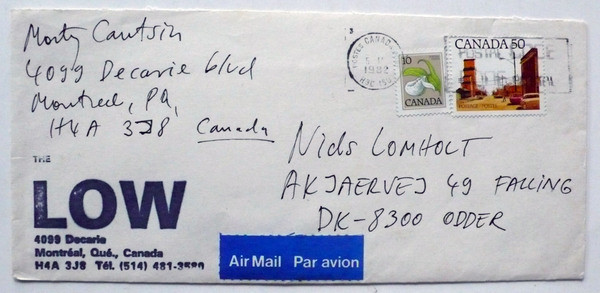 Monty Cantsin
4099 Decarie blvd
Montreal, PQ,
H4A 3J8 Canada
THE
LOW
4099 Decarie
Montréal, Qué., Canada
H4A 3J8 Tél. (514) 481-3580
POSTES CANADA
1982
10
CANADA
CANADA 50
POSTAGE POSTES
POSTAL CODE
Niels LOMHOLT
AKJAERVEJ 49 FALLING
DK-8300 ODDER
Air Mail Par avion